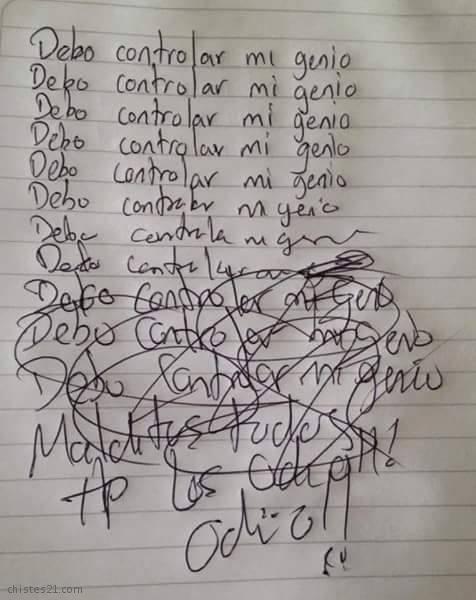 Debo controlar mi genio
Debo controlar mi genio
Debo controlar mi genio
Debo controlar mi genio
Debo controlar mi genio
Debo controlar mi genio
Debo
Debo
Debo controlar mi genio
Debo controlar mi genio
Debo controlar mi genio
Malditos todos
HP los odio!!
odio!!
chistes21.com